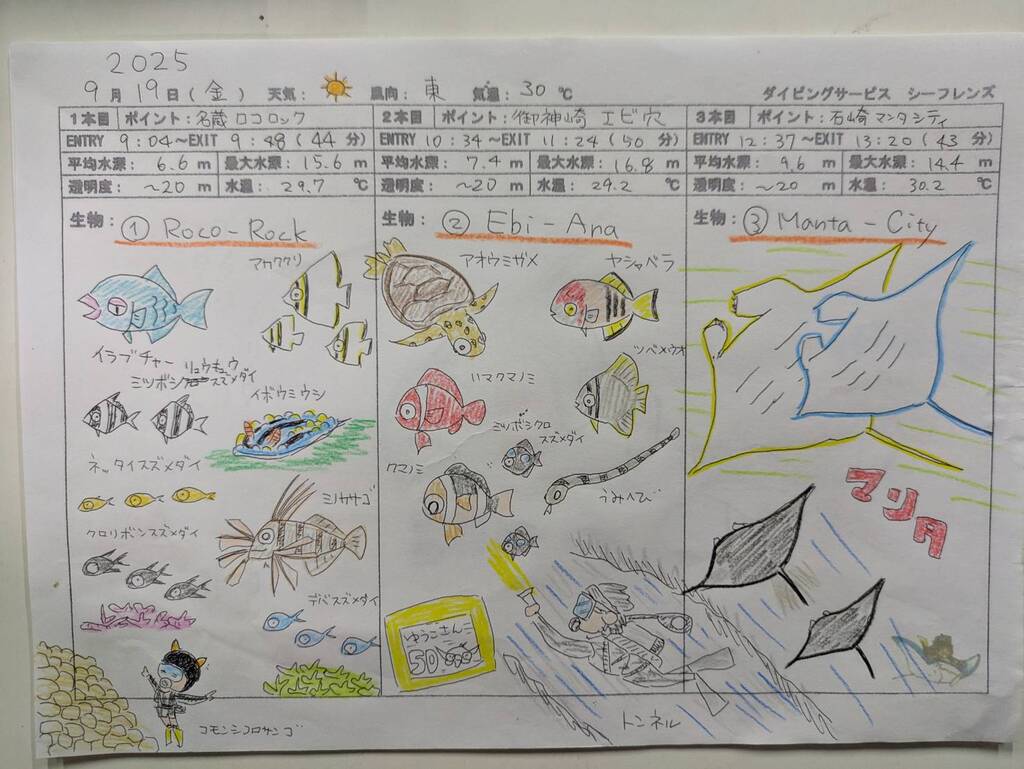 2025
9月19日(金) 天気: 風向: 東 気温: 30℃ ダイビングサービス シーフレンズ
1本目 ポイント: 名蔵 ロコロック
ENTRY 9:04~EXIT 9:48(44分)
平均水深: 6.6 m 最大水深: 15.6 m
透明度: ~20 m 水温: 29.7 ℃
2本目 ポイント: 御神崎 エビ穴
ENTRY 10:34~EXIT 11:24(50分)
平均水深: 7.4 m 最大水深: 16.8 m
透明度: ~20 m 水温: 29.2 ℃
3本目 ポイント: 石崎 マンタシティ
ENTRY 12:37~EXIT 13:20(43分)
平均水深: 9.6 m 最大水深: 14.4 m
透明度: ~20 m 水温: 30.2 ℃
生物: ① Roco-Rock
イラブチャー
リュウキュウ
ミツボシ スズメダイ
イボウミウシ
ネッタイスズメダイ
ミノカサゴ
クロリボンスズメダイ
デバスズメダイ
コモンシコロサンゴ
生物: ② Ebi-Ana
アオウミガメ
ヤシャベラ
ツバメウオ
ハマクマノミ
ミツボシクロ
スズメダイ
クマノミ
うみへび
ゆうこさん
トンネル
生物: ③ Manta-City
マンタ